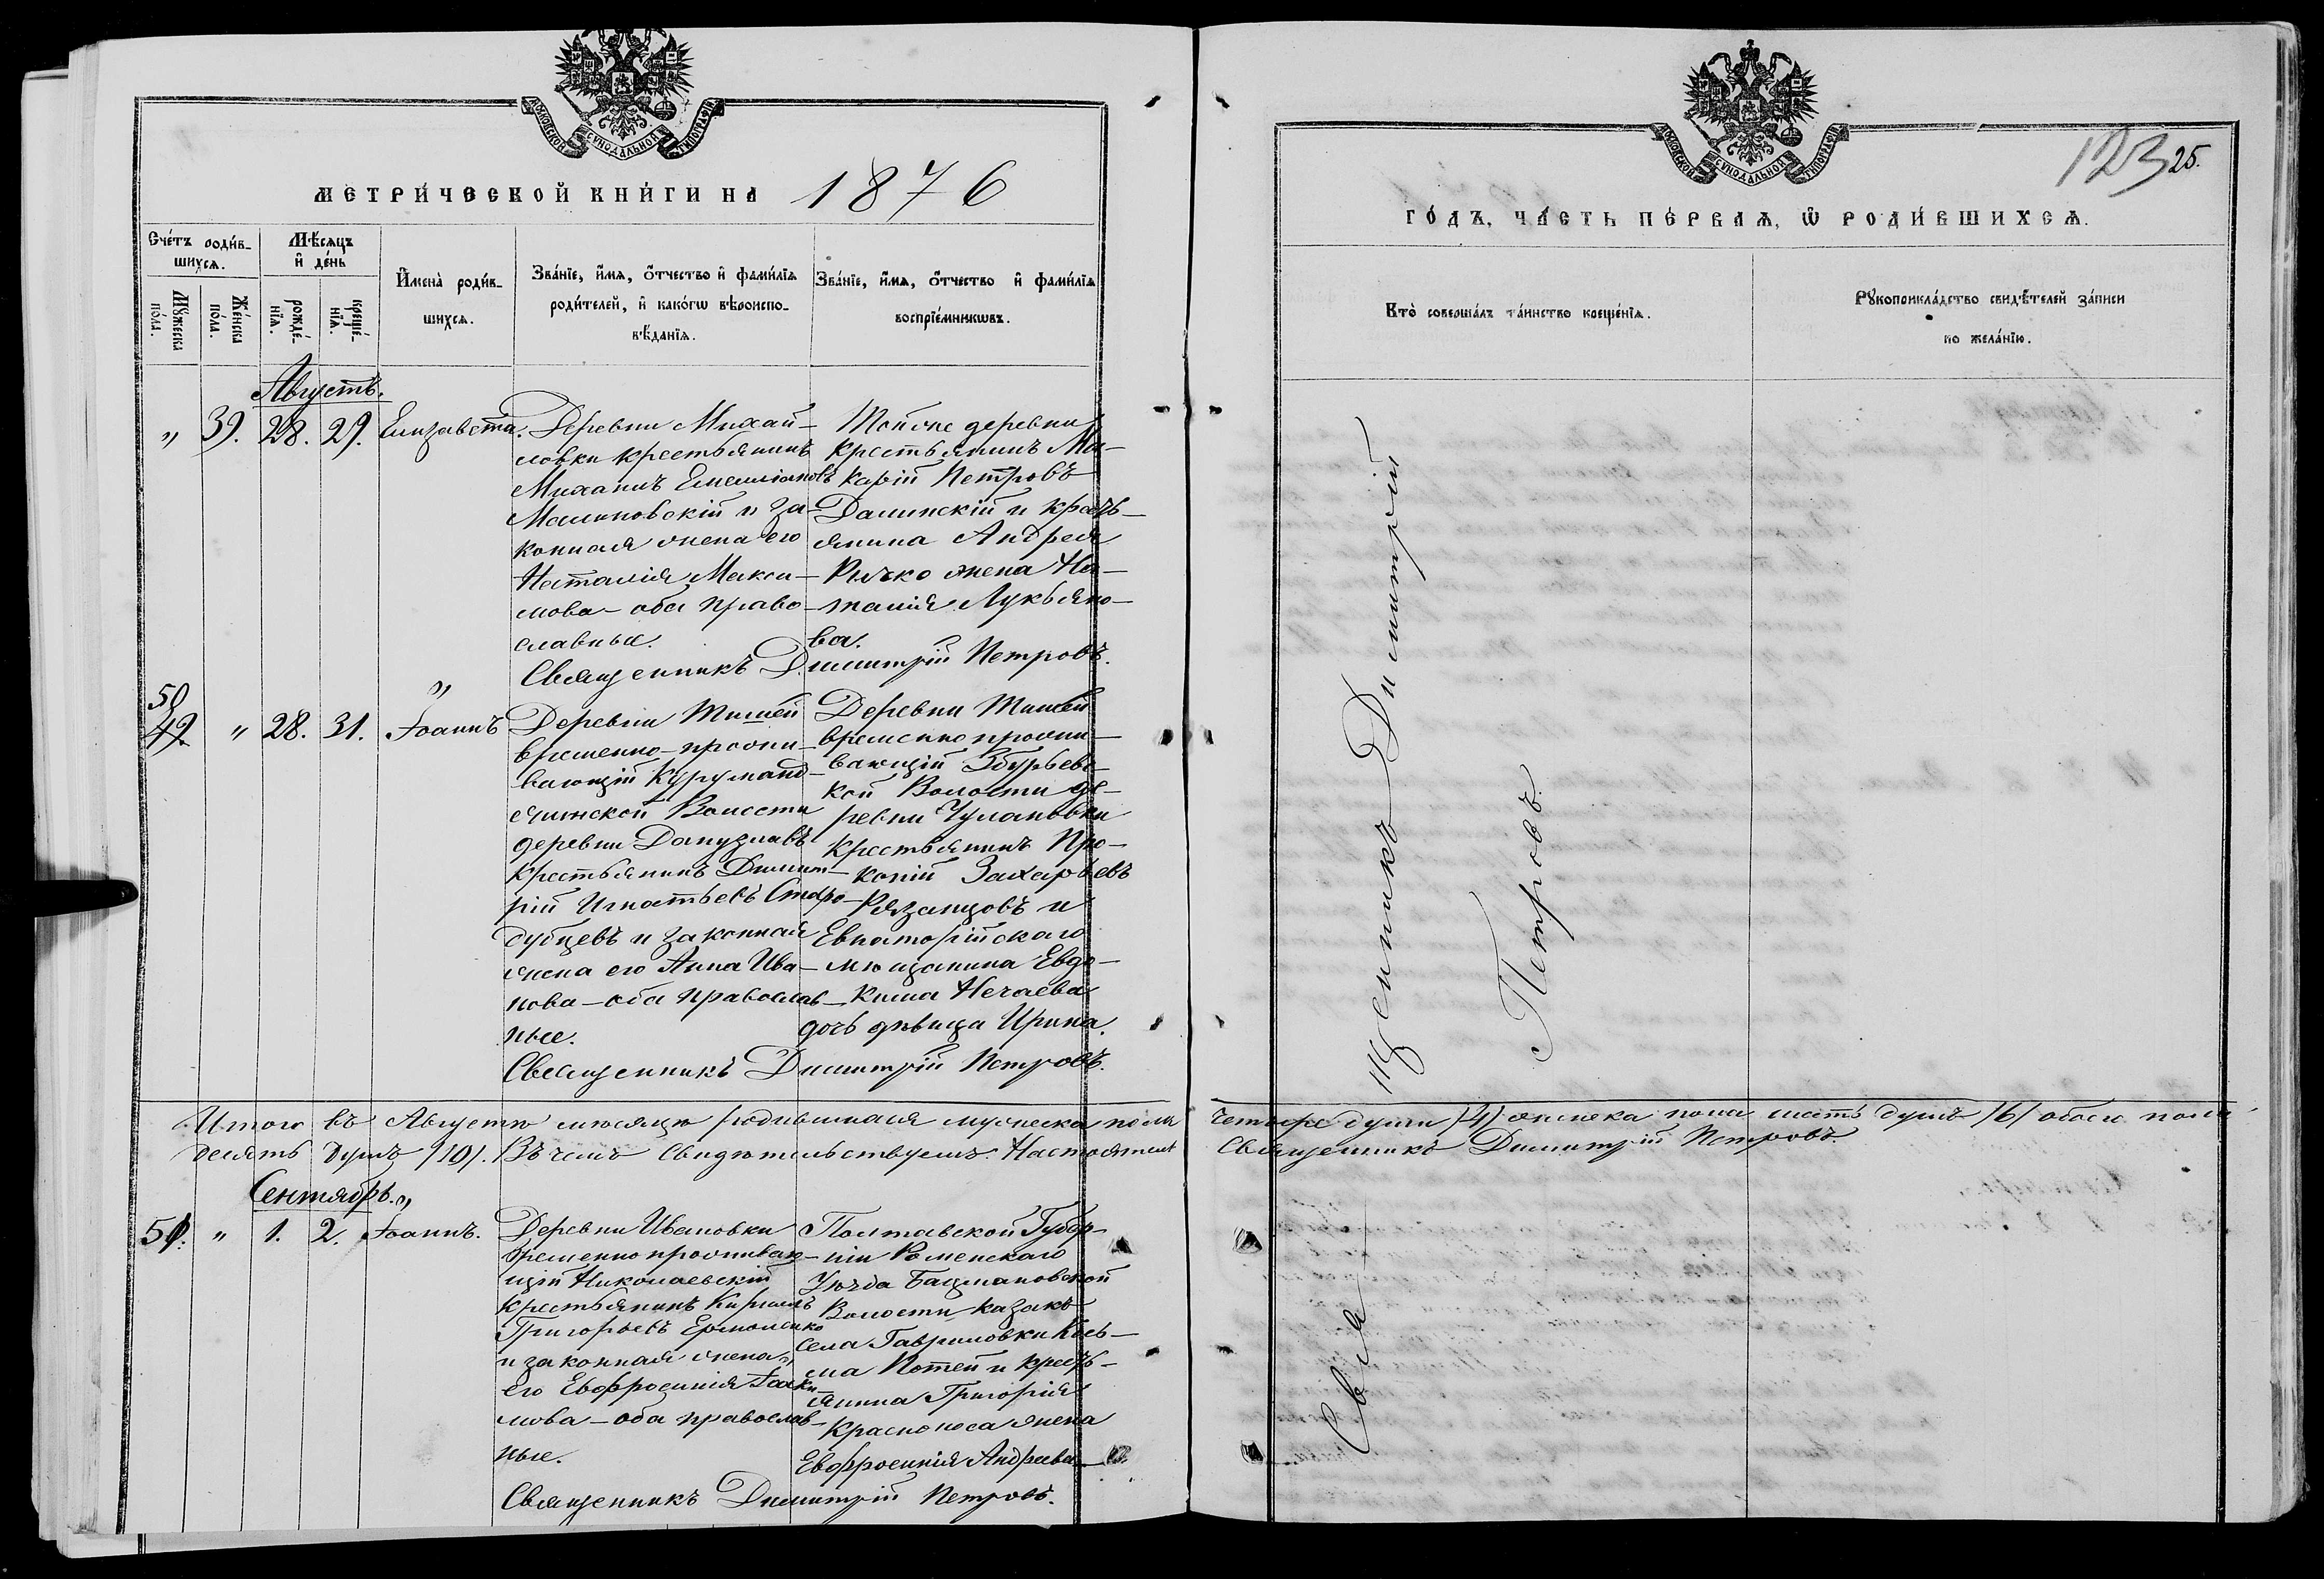 МОСКОВСКОЙ СУНОДАЛЬНОЙ ТИПОГРАФІИ
МЕТРИ́ЧЕСКОЙ КНИ́ГИ НА 1876
Сче́тъ роди́в-
шихсѧ.
Мꙋ́жеска по́ла.
Же́нска по́ла.
Мѣ́сѧцъ
и҆ де́нь
рожде́-
нїѧ.
креще́-
нїѧ.
И҆мена̀ роди́в-
шихсѧ.
Зва́нїе, и҆́мѧ, ѻ҆́тчество и҆ фами́лїѧ
роди́телей, и҆ како́гѡ вѣроиспо-
вѣ́данїѧ.
Зва́нїе, и҆́мѧ, ѻ҆́тчество и҆ фами́лїѧ
воспрїе́мникѡвъ.
Августъ.
„ 39. 28. 29. Елизавета.
Деревни Михай-
ловки крестьянинъ
Михаилъ Емелліановъ
Малиновскій и за-
конная жена его
Наталія Макси-
мова - оба право-
славные.
Тойже деревни
крестьянинъ Ма-
карій Петровъ
Далинскій и кресть-
янина Андрея
Рычко жена На-
талія Лукьяно-
ва.
Священникъ Димитрій Петровъ.
„
50
49. „ 28. 31. Іоаннъ
Деревни Тишей
временно-прожи-
вающій Курумано-
вской Волости
деревни Донузлавъ
крестьянинъ Димит-
рій Игнатьевъ Старо-
дубцевъ и законная
жена его Анна Ива-
нова - оба православ-
ные.
Деревни Тишей
временно прожи-
вающій Збурьевс-
кой Волости де-
ревни Чулаковки
крестьянинъ Про-
копій Захарьевъ
Рязанцовъ и
Евпаторійскаго
мѣщанина Евдо-
кима Нечаева
дочь дѣвица Ирина.
Священникъ Димитрій Петровъ.
Итого въ Августѣ мѣсяцѣ родившихся мужеска пола
десять душъ /10/. Въ чемъ Свидѣтельствуемъ: Настоятель
Сентябрь. „
51. „ 1. 2. Іоаннъ.
Деревни Ивановки
временно проживаю-
щій Николаевскій
крестьянинъ Кириллъ
Григорьевъ Ермоленко
и законная жена
его Евфросинія Іоаки-
мова - оба православ-
ные.
Полтавской Губер-
ніи Роменскаго
Уѣзда Бацмановской
Волости казакъ
села Гавриловки Кось-
ма Потей и кресть-
янина Григорія
Красноноса жена
Евфросинія Андреева
Священникъ Димитрій Петровъ.
МОСКОВСКОЙ СУНОДАЛЬНОЙ ТИПОГРАФІИ
123 25.
ГО́ДЪ, ЧА́СТЬ ПЕ́РВАѦ, Ѡ҆ РОДИ́ВШИХСѦ.
Кто̀ соверша́лъ та́инство креще́нїѧ.
Рꙋкоприкла́дство свидѣ́телей за́писи
по жела́нїю.
Священникъ Димитрій
Петровъ.
четыре души /4/ женска пола шесть душъ /6/ обоего пола
Священникъ Димитрій Петровъ.